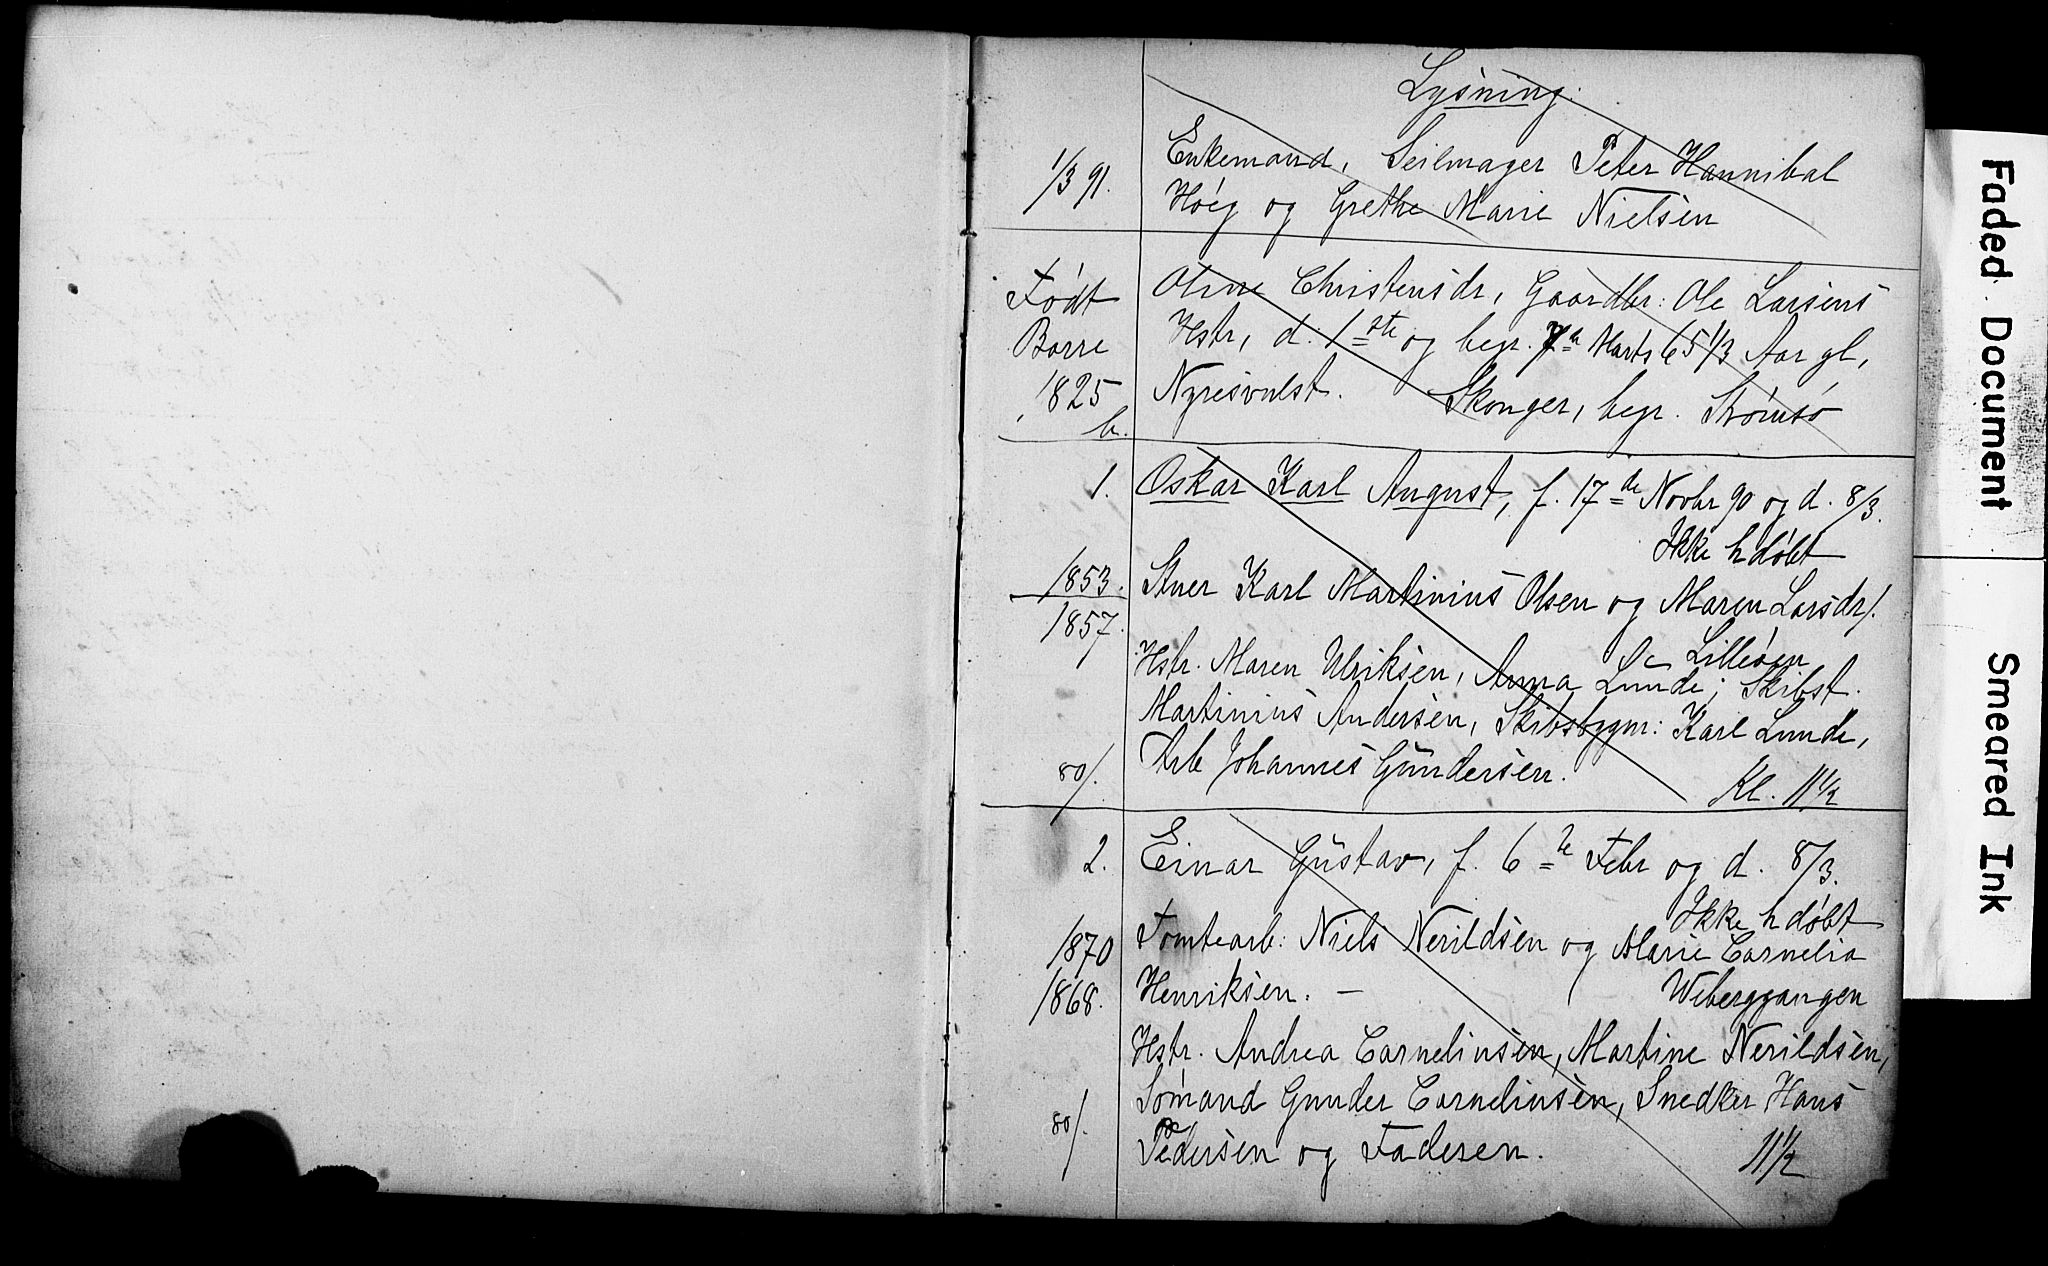 Lysning.
1/3 91. Enkemand, Seilmager Peter Hannibal
Höeg og Grethe Marie Nielsen
Født Oline Christensdr, Gaardbr: Ole Larsens
Borre Hstr, d. 1ste og begr. 7de Marts 65 1/3 Aar gl,
1825 Nyresvulst. Skonger, begr. Strømsø
b.
1. Oskar Karl August, f. 17de Novbr 90 og d. 8/3.
Ikke hdøbt
1853. Stuer Karl Martinius Olsen og Maren Larsdr/.
1857. Lilleøen
Hstr. Maren Ulriksen, Anna Lunde; Skibst.
Martinius Andersen, Skibsbygm: Karl Lunde,
80/. Arb Johannes Gundersen. Kl. 11 1/2
2. Einar Gustav, f. 6te Febr og d. 8/3.
Ikke hdøbt
1870 Tomtearb: Niels Nerildsen og Marie Cornelia
1868. Henriksen. – Weberggangen
Hstr. Andrea Corneliusen, Martine Nerildsen,
Sømand Gunder Corneliusen, Snedker Hans
80/. Pedersen og Faderen. 11 1/2
Faded Document
Smeared Ink